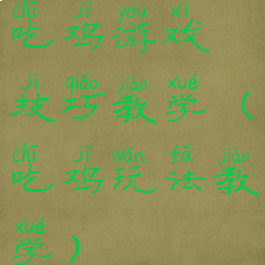 chī jī yóu xì
吃鸡游戏
jì qiǎo jiàn xué
技巧教学（
chī jī wán fǎ jiào
吃鸡玩法教
xué
学）